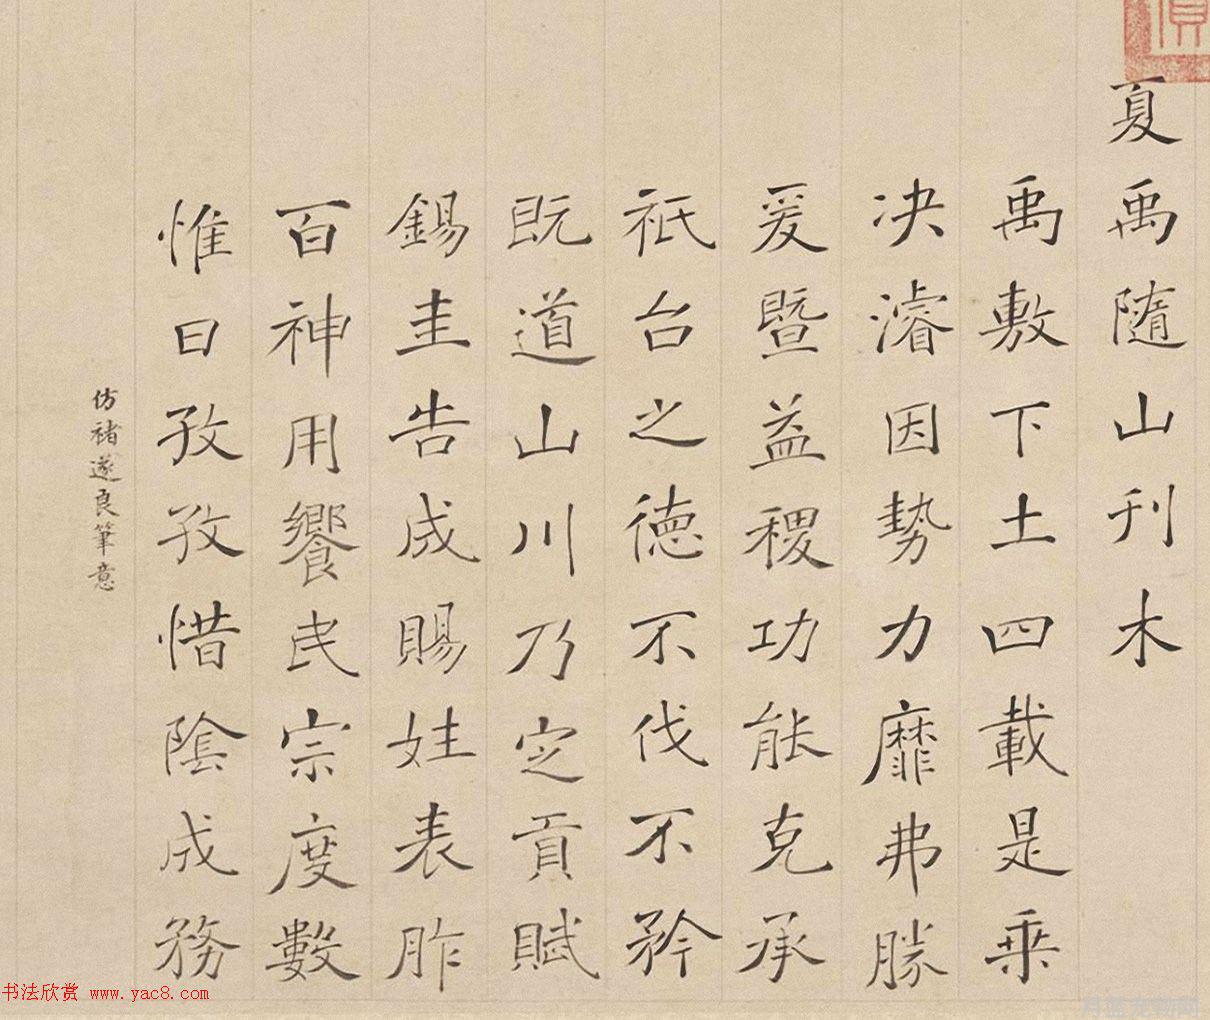 夏禹隨山刊木
禹敷下土四載是乗
决濬因勢力靡弗勝
爰暨益稷功能克承
祇台之德不伐不矜
既道山川乃定貢賦
錫圭告成賜姓表胙
百神用饗民宗度數
惟日孜孜惜陰成務
仿褚遂良筆意
书法欣赏 www.yac8.com